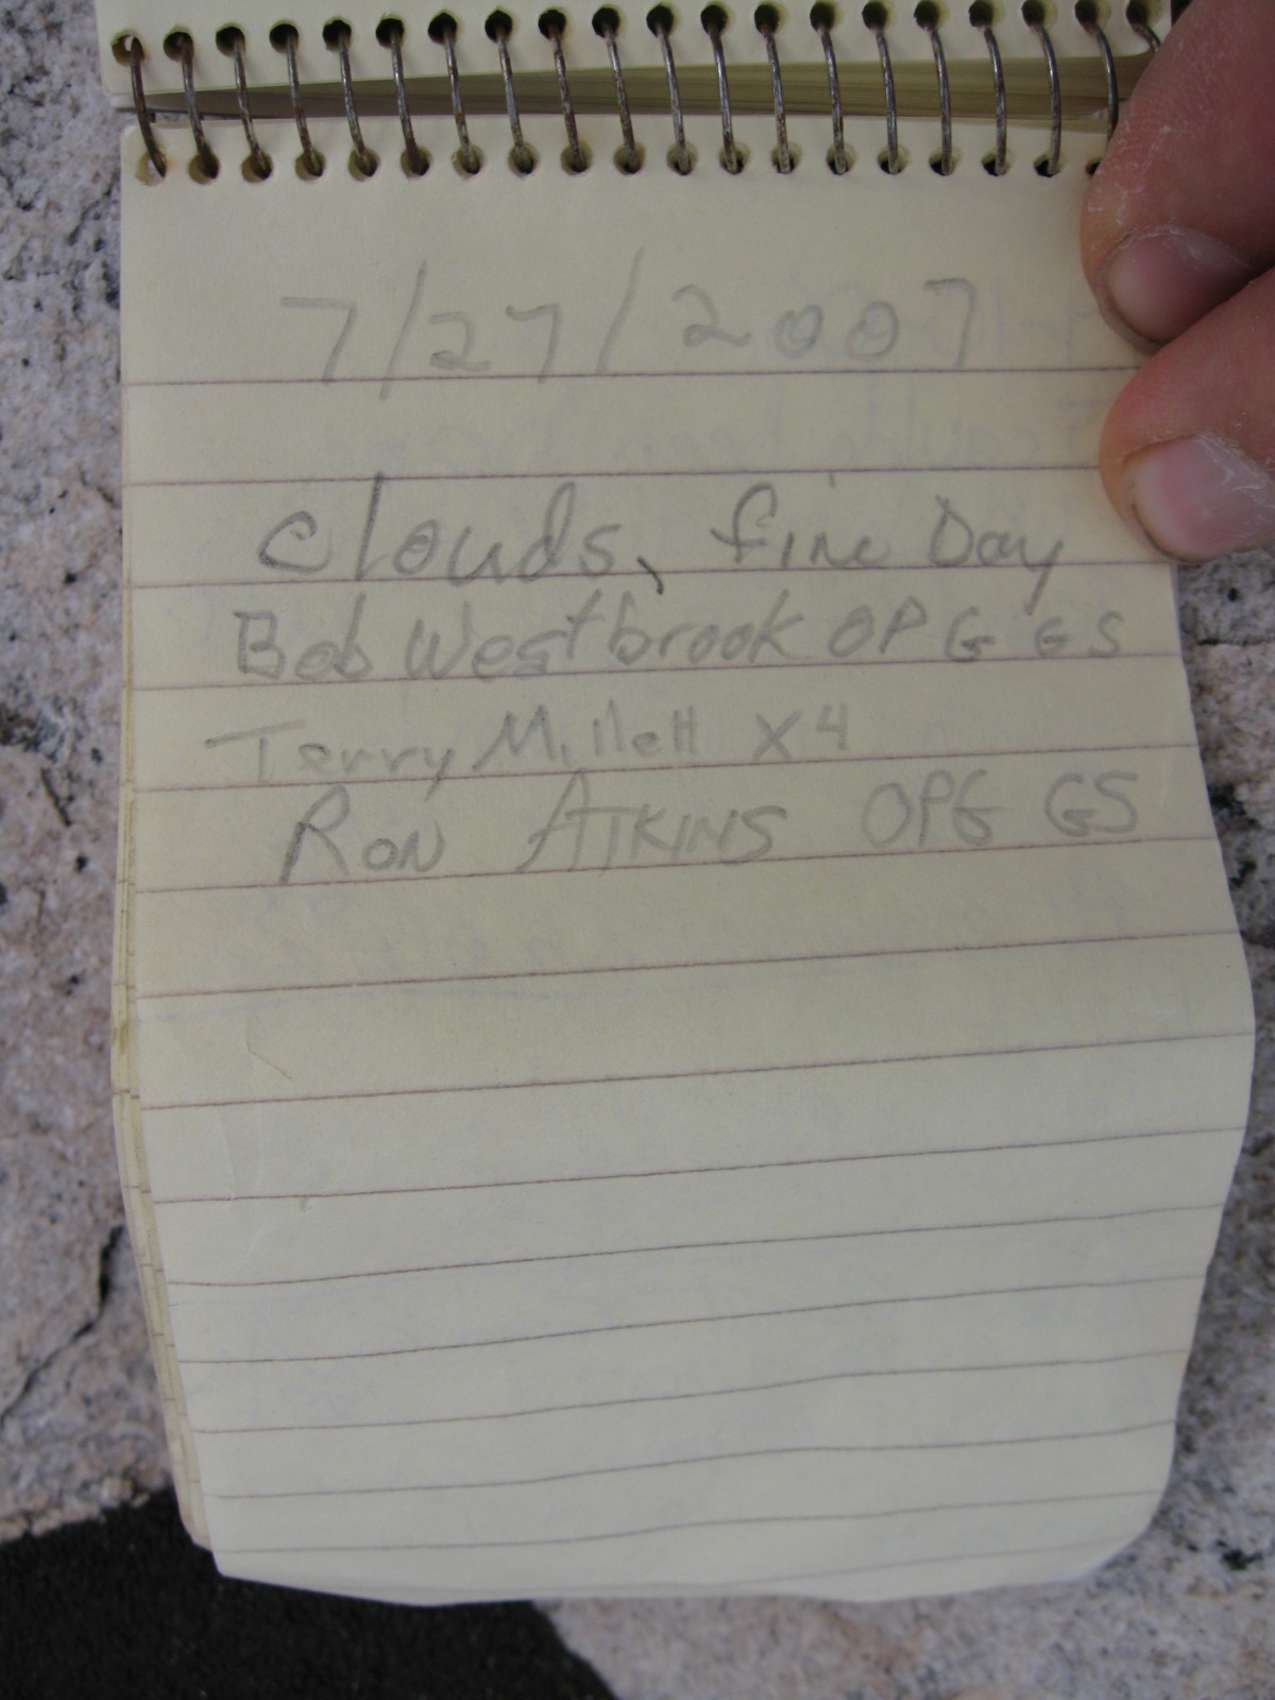 7/27/2007
Clouds, fine Day
Bob Westbrook OPG GS
Terry Millett X4
RON ATKINS OPG GS